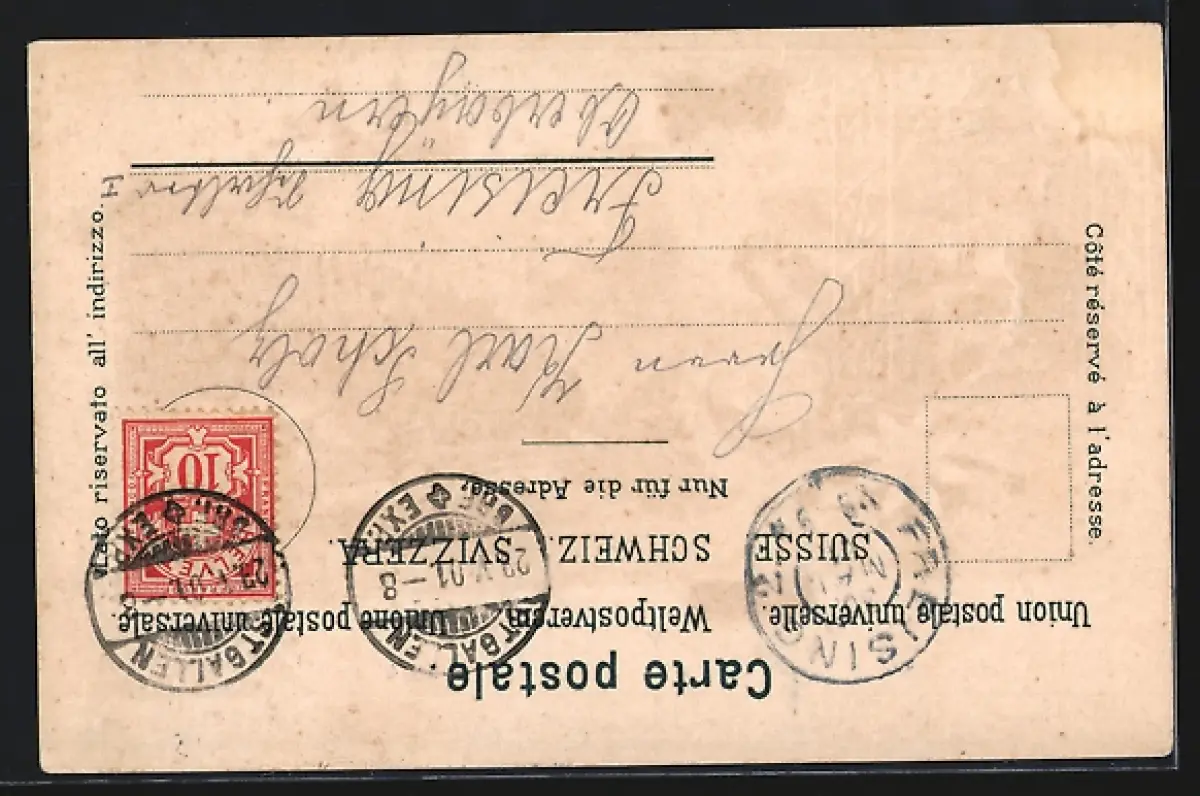 Carte postale
Union postale universelle. Weltpostverein. Unione postale universale.
SUISSE SCHWEIZ. SVIZZERA.
Nur für die Adresse.
Côté réservé à l'adresse.
Lato riservato all' indirizzo.
Herrn Karl Scholz
Freising
Oberbayern
10
HELVETIA
ST GALLEN
BRF. EXP.
ST GALLEN
29.V.01-8
BRF. EXP.
FREISING
MAI